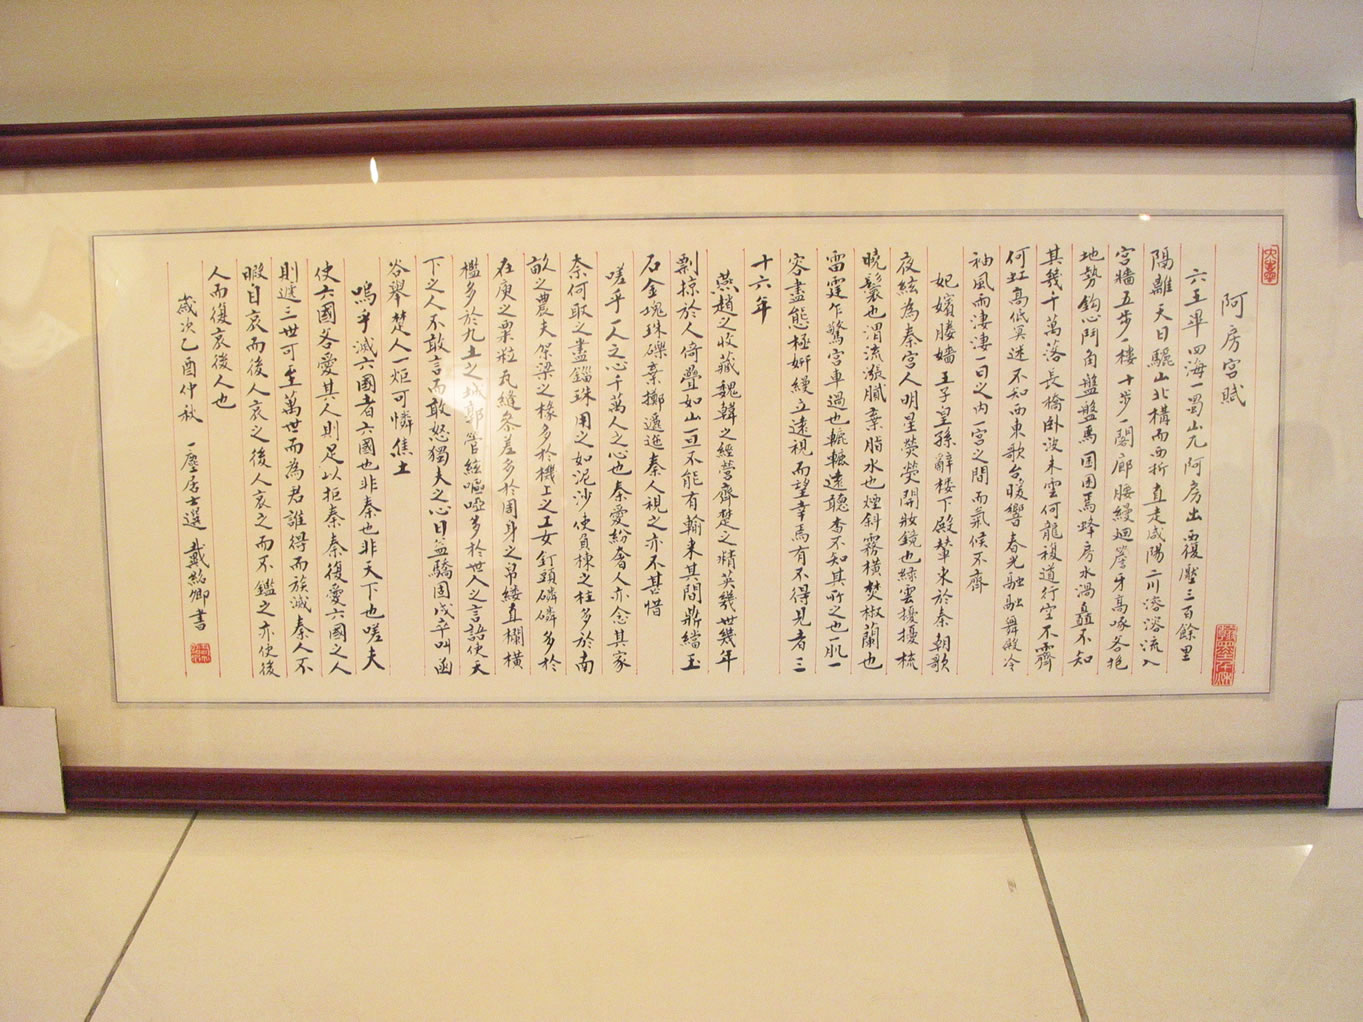 阿房宮賦
六王畢四海一蜀山兀阿房出覆壓三百餘里
隔離天日驪山北構而西折直走咸陽二川溶溶流入
宮牆五步一樓十步一閣廊腰縵迴簷牙高啄各抱
地勢鈎心鬥角盤盤焉囷囷焉蜂房水渦矗不知
其幾千萬落長橋臥波未雲何龍複道行空不霽
何虹高低冥迷不知西東歌台暖響春光融融舞殿冷
袖風雨淒淒一日之內一宮之間而氣候不齊
妃嬪媵嬙王子皇孫辭樓下殿輦來於秦朝歌
夜絃為秦宮人明星熒熒開妝鏡也綠雲擾擾梳
曉鬟也渭流漲膩棄脂水也煙斜霧橫焚椒蘭也
雷霆乍驚宮車過也轆轆遠聽杳不知其所之也一肌一
容盡態極妍縵立遠視而望幸焉有不得見者三
十六年
燕趙之收藏魏韓之經營齊楚之精英幾世幾年
剽掠於人倚疊如山一旦不能有輸來其間鼎鐺玉
石金塊珠礫棄擲邐迤秦人視之亦不甚惜
嗟乎一人之心千萬人之心也秦愛紛奢人亦念其家
奈何取之盡錙珠用之如泥沙使負棟之柱多於南
畝之農夫架梁之椽多於機上之工女釘頭磷磷多於
在庾之粟粒瓦縫參差多於周身之帛縷直欄橫
檻多於九土之城郭管絃嘔啞多於世人之言語使天
下之人不敢言而敢怒獨夫之心日益驕固戍卒叫函
谷舉楚人一炬可憐焦土
嗚乎滅六國者六國也非秦也非天下也嗟夫
使六國各愛其人則足以拒秦秦復愛六國之人
則遞三世可至萬世而為君誰得而族滅秦人不
暇自哀而後人哀之後人哀之而不鑑之亦使後
人而復哀後人也
歲次乙酉仲秋 一塵居士選 戴紹卿書